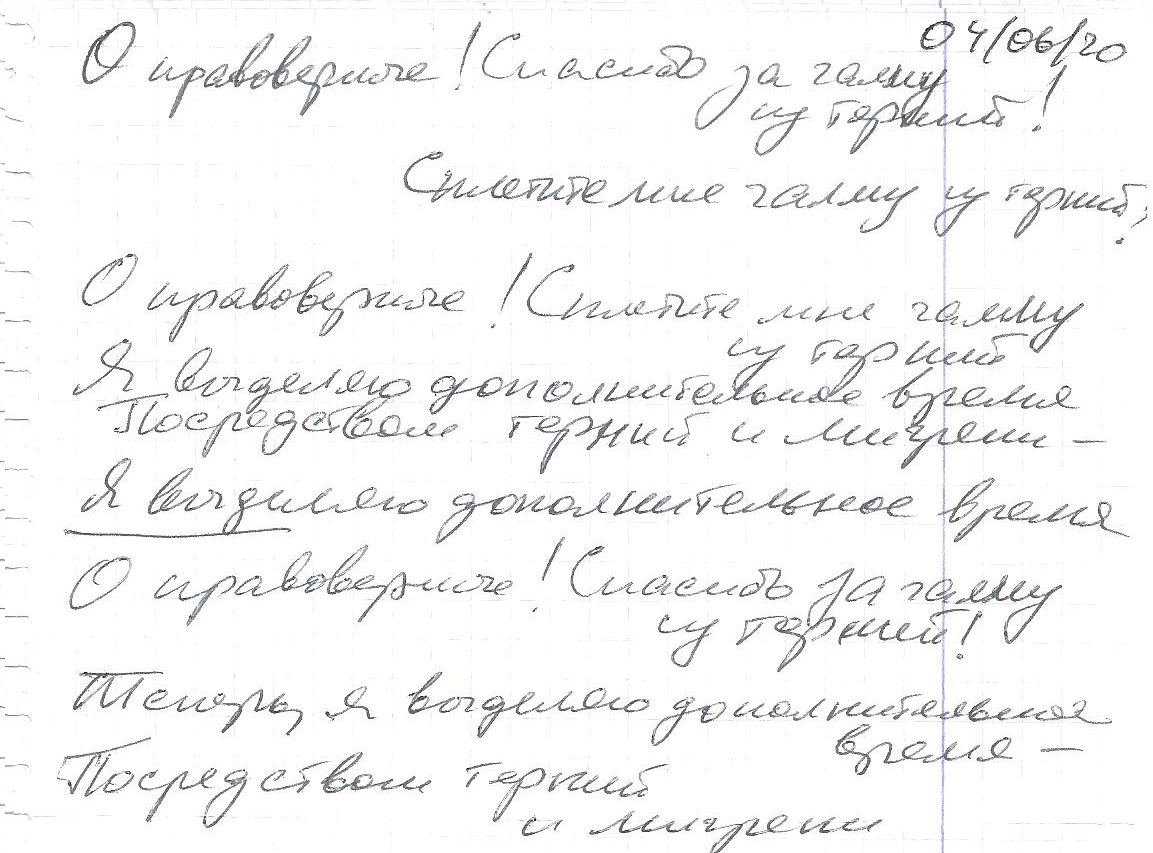 04/06/20
О правоверные! Спасибо за чалму
из терний!
Сплетите мне чалму из терний?
О правоверные! Сплетите мне чалму
из терний
Я выделяю дополнительное время
Посредством терний и мигрени –
Я выделяю дополнительное время
О правоверные! Спасибо за чалму
из терний!
Теперь, я выделяю дополнительное
время –
Посредством терний
и мигрени